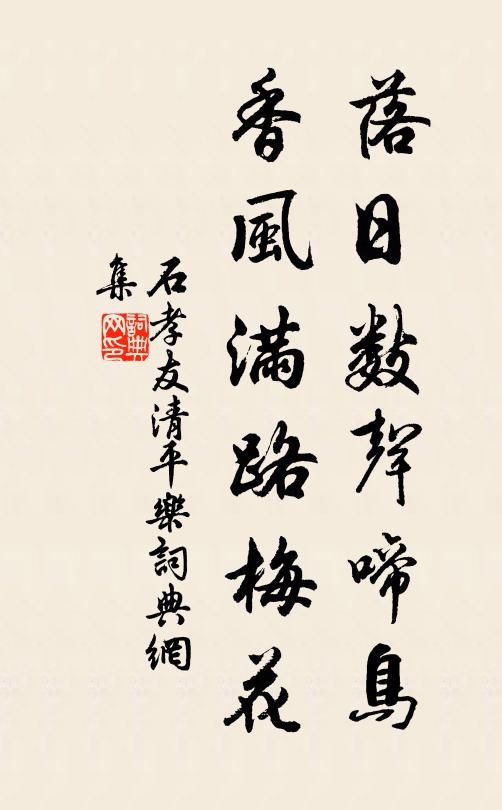 落日數聲啼鳥
香風滿路梅花
石孝友清平樂詞典網
集
詞典网印